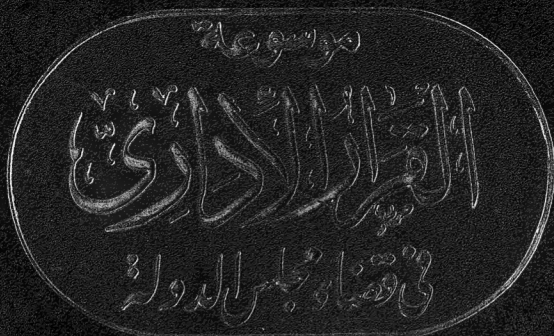 موسوعة
القرار الإداري
في قضاء مجلس الدولة